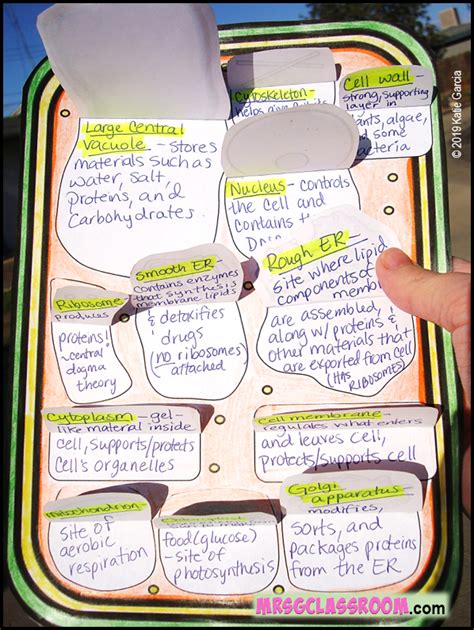 © 2019 Katie Garcia
Large Central
Vacuole - stores
materials such as
water, salt,
proteins, and
carbohydrates.
Cytoskeleton -
helps give
Cell wall -
strong, supporting
layer in
plants, algae,
and some
bacteria
Nucleus - controls
the cell and
contains the
DNA
Smooth ER -
contains enzymes
that synthesis
membrane lipids
& detoxifies
drugs
(no ribosomes
attached
Rough ER -
site where lipid
components of
memb
are assembled,
along w/ proteins &
other materials that
are exported from cell
(HAS
RIBOSOMES)
Ribosome
produces
proteins!
- central
dogma
theory
Cytoplasm - gel-
like material inside
cell, supports/protects
cell's organelles
Cell membrane -
regulates what enters
and leaves cell,
protects/supports cell
Mitochondrion -
site of
aerobic
respiration
food (glucose)
- site of
photosynthesis
Golgi
apparatus -
modifies,
sorts, and
packages proteins
from the ER
MRSGCLASSROOM.com